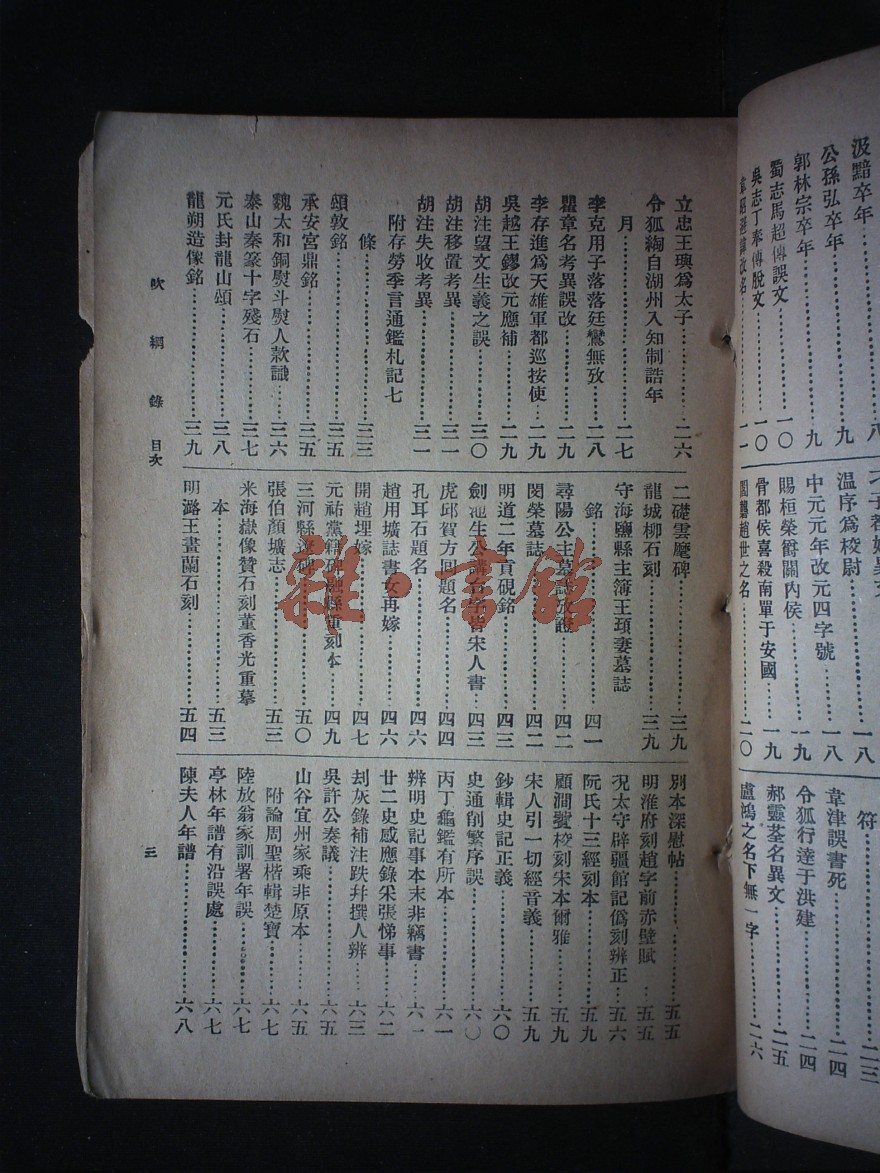 汲黯卒年
八
公孫弘卒年
九
郭林宗卒年
九
蜀志馬超傳誤文
一〇
吳志丁奉傳脫文
一〇
一一
溫序爲校尉
一八
中元元年改元四字號
一八
賜桓榮爵關內侯
一九
骨都侯喜殺南單于安國
一九
二〇
符
二三
韋津誤書死
二四
令狐行達于洪建
二四
郝靈荃名異文
二五
盧鴻之名下無一字
二六
立忠王璵爲太子
二六
令狐綯自湖州入知制誥年
月
二七
李克用子落落廷鸞無攷
二八
瞿章名考異誤改
二九
李存進爲天雄軍都巡按使
二九
吳越王鏐改元應補
二九
胡注望文生義之誤
三〇
胡注移置考異
三一
胡注失收考異
三一
附存勞季言通鑑札記七
條
三三
頌敦銘
三五
承安宮鼎銘
三五
魏太和銅熨斗熨人款識
三六
泰山秦篆十字殘石
三七
元氏封龍山頌
三八
龍朔造像銘
三九
二礎雲麾碑
三九
龍城柳石刻
三九
守海鹽縣主簿王頊妻墓誌
銘
四一
尋陽公主墓誌攷證
四二
閔榮墓誌
四二
明道二年貢硯銘
四三
劍池生公講台字皆宋人書
四三
虎邱賀方回題名
四四
孔耳石題名
四六
趙用壙誌書女再嫁
四六
開趙埋嫁
四七
元祐黨籍碑融縣重刻本
四九
三河縣遼碑
五〇
張伯顏壙志
五三
米海嶽像贊石刻董香光重摹
本
五三
明潞王畫蘭石刻
五四
別本深慰帖
五五
明淮府刻趙字前赤壁賦
五五
況太守辟疆館記僞刻辨正
五六
阮氏十三經刻本
五九
顧澗薲校刻宋本爾雅
五九
宋人引一切經音義
五九
鈔輯史記正義
六〇
史通削繁序誤
六〇
丙丁龜鑑有所本
六一
辨明史記事本末非竊書
六一
廿二史感應錄采張悌事
六二
刦灰錄補注跌幷撰人辨
六三
吳許公奏議
六五
山谷宜州家乘非原本
六五
附論周聖楷輯楚寶
六七
陸放翁家訓署年誤
六七
亭林年譜有沿誤處
六七
陳夫人年譜
六八
吹網錄 目次
三
雜·書館